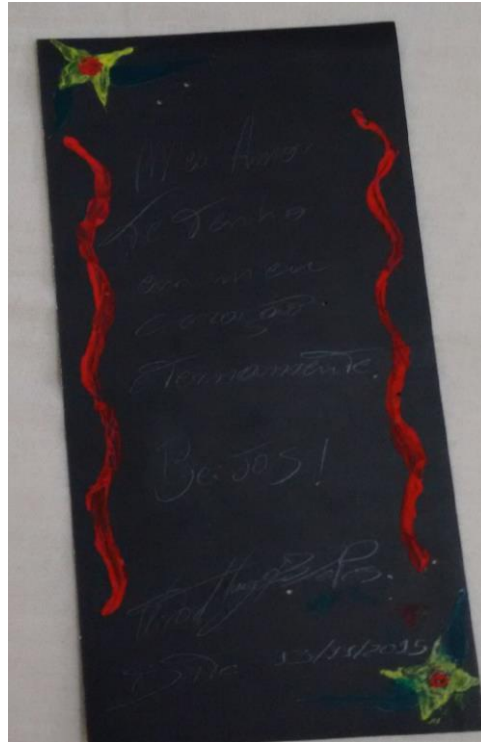 Meu Amor
Te Tenho
em meu
Coração
Eternamente.
Beijos!
13/11/2015